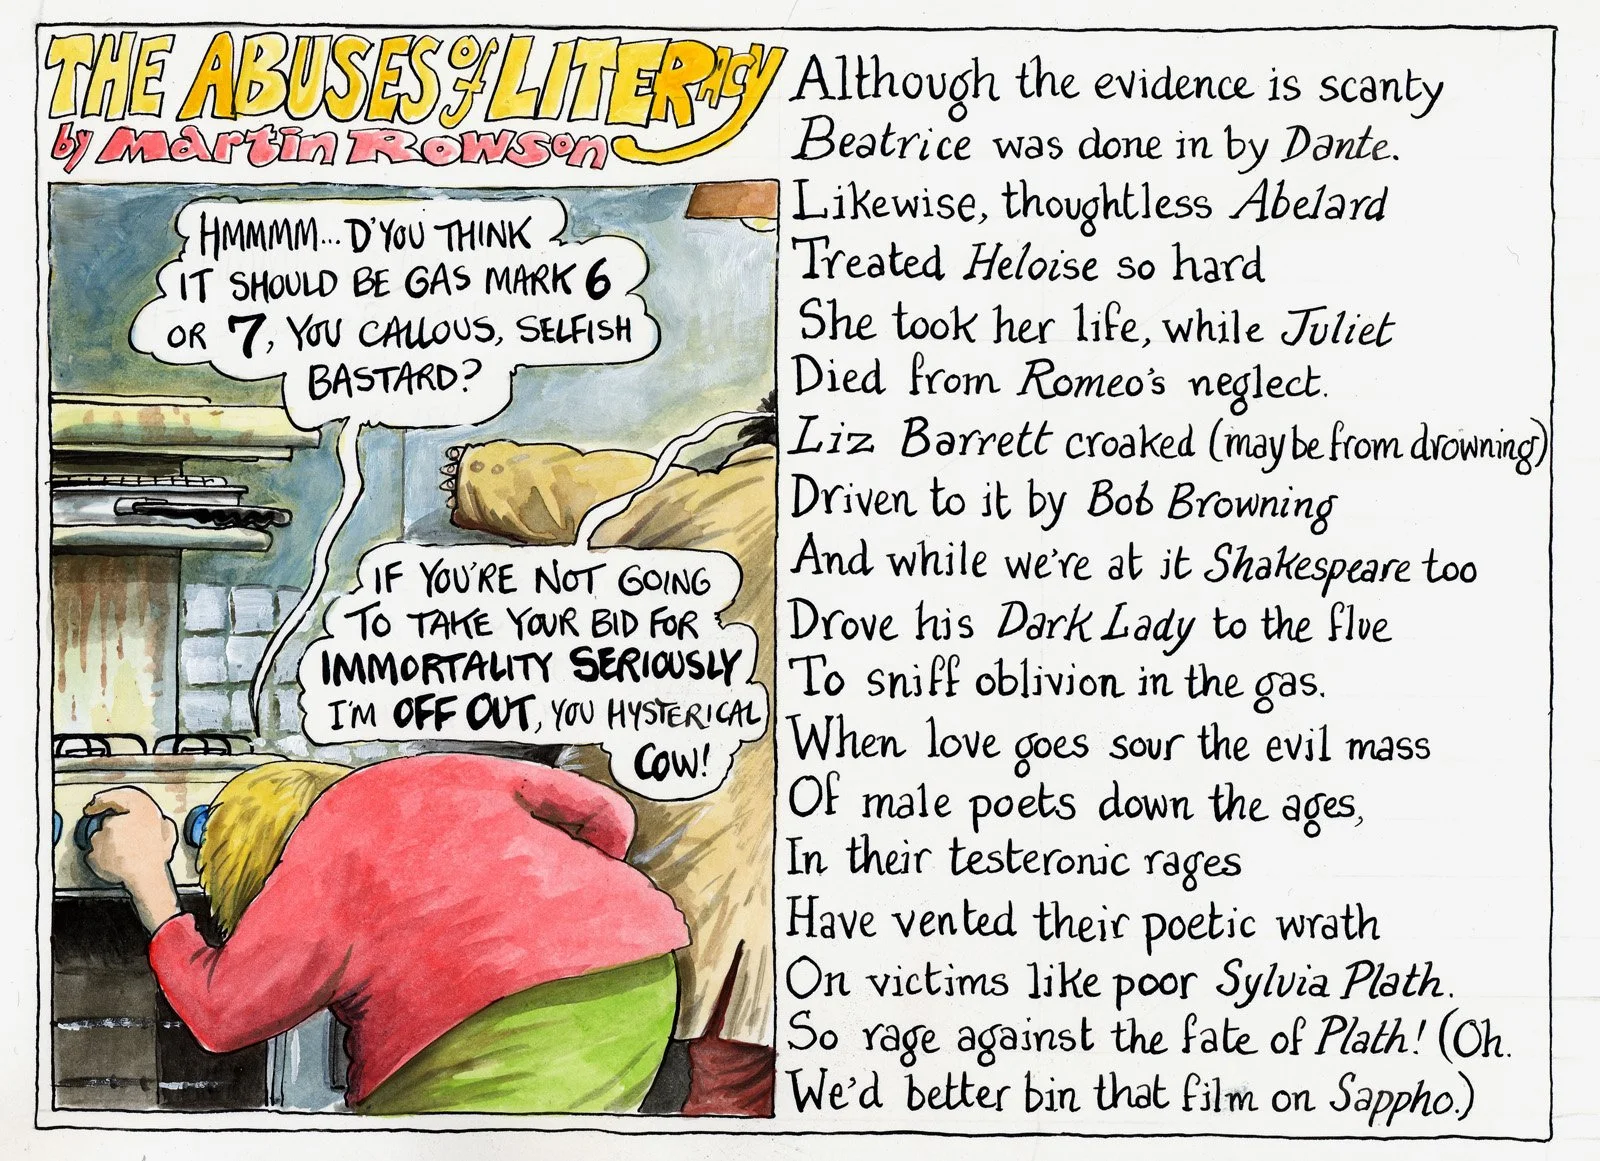 THE ABUSES of LITERACY
by Martin Rowson
HMMMM... D'YOU THINK
IT SHOULD BE GAS MARK 6
OR 7, YOU CALLOUS, SELFISH
BASTARD?
IF YOU'RE NOT GOING
TO TAKE YOUR BID FOR
IMMORTALITY SERIOUSLY
I'M OFF OUT, YOU HYSTERICAL
COW!
Although the evidence is scanty
Beatrice was done in by Dante.
Likewise, thoughtless Abelard
Treated Heloise so hard
She took her life, while Juliet
Died from Romeo's neglect.
Liz Barrett croaked (maybe from drowning)
Driven to it by Bob Browning
And while we're at it Shakespeare too
Drove his Dark Lady to the flue
To sniff oblivion in the gas.
When love goes sour the evil mass
Of male poets down the ages,
In their testeronic rages
Have vented their poetic wrath
On victims like poor Sylvia Plath.
So rage against the fate of Plath! (Oh.
We'd better bin that film on Sappho.)